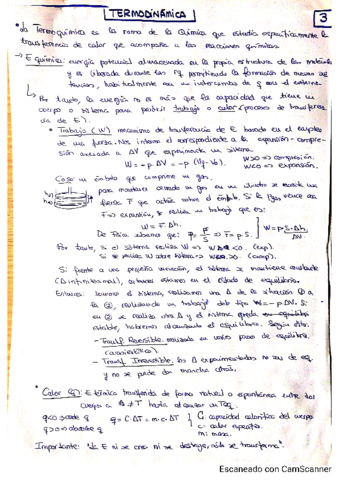 TERMODINÁMICA
3
• La Termoquímica es la rama de la Química que estudia específicamente la
transferencia de calor que acompaña a las reacciones químicas.
→ E química: energía potencial almacenada en la propia estructura de los materiales
y es liberada durante las rq permitiendo la formación de nuevas sustancias,
habitualmente con un intercambio de q con el entorno.
Por tanto, la energía no es más que la capacidad que tiene un
cuerpo o sistema para producir trabajo o calor (procesos de transferencia
de E).
• Trabajo (W) mecanismo de transferencia de E basado en el empleo
de una fuerza. Nos interesa el correspondiente a la expansión - compresión
asociada a ΔV que experimenta un sistema.
W = -p·ΔV = -p (Vf - Vo).
W>0 => compresión.
W<0 => expansión.
Caso: un émbolo que comprime un gas.
para mantener cerrado un gas en un cilindro se necesita una
fuerza F que actúe sobre el émbolo. Si la Pgas vence esa
F => expansión, se realiza un trabajo que es:
W = F·Δh.
De Física sabemos que: P = F/S => F = p·S.
W = p·S·Δh.
ΔV.
Por tanto, si el sistema realiza W => W<0. (exp).
Si se realiza W sobre sistema => W>0. (comp).
Si frente a una pequeña variación, el sistema se mantiene constante
(Δ infinitesimal), entonces estamos en el estado de equilibrio.
Entonces: tenemos el sistema, realizamos una Δ de la situación ① a
la ②, realizando un trabajo del tipo W = -p·ΔV. Si
en ② se realiza otra Δ y el sistema queda en equilibrio
estable, habremos alcanzado el equilibrio. Según esto:
- Transf. Reversible: realizada en varios pasos de equilibrio.
- Transf. Irreversible: las Δ experimentadas no van de eq.
y no se puede dar marcha atrás.
• Calor (q): E térmica transferida de forma natural o espontánea entre dos
cuerpos a ≠T hasta alcanzar un Teq.
q<0 => cede q
q>0 => absorbe q
q = C·ΔT = m·c·ΔT
C: capacidad calorífica del cuerpo
c: calor específico.
m: masa.
Importante: "La E ni se crea ni se destruye, sólo se transforma".
Escaneado con CamScanner